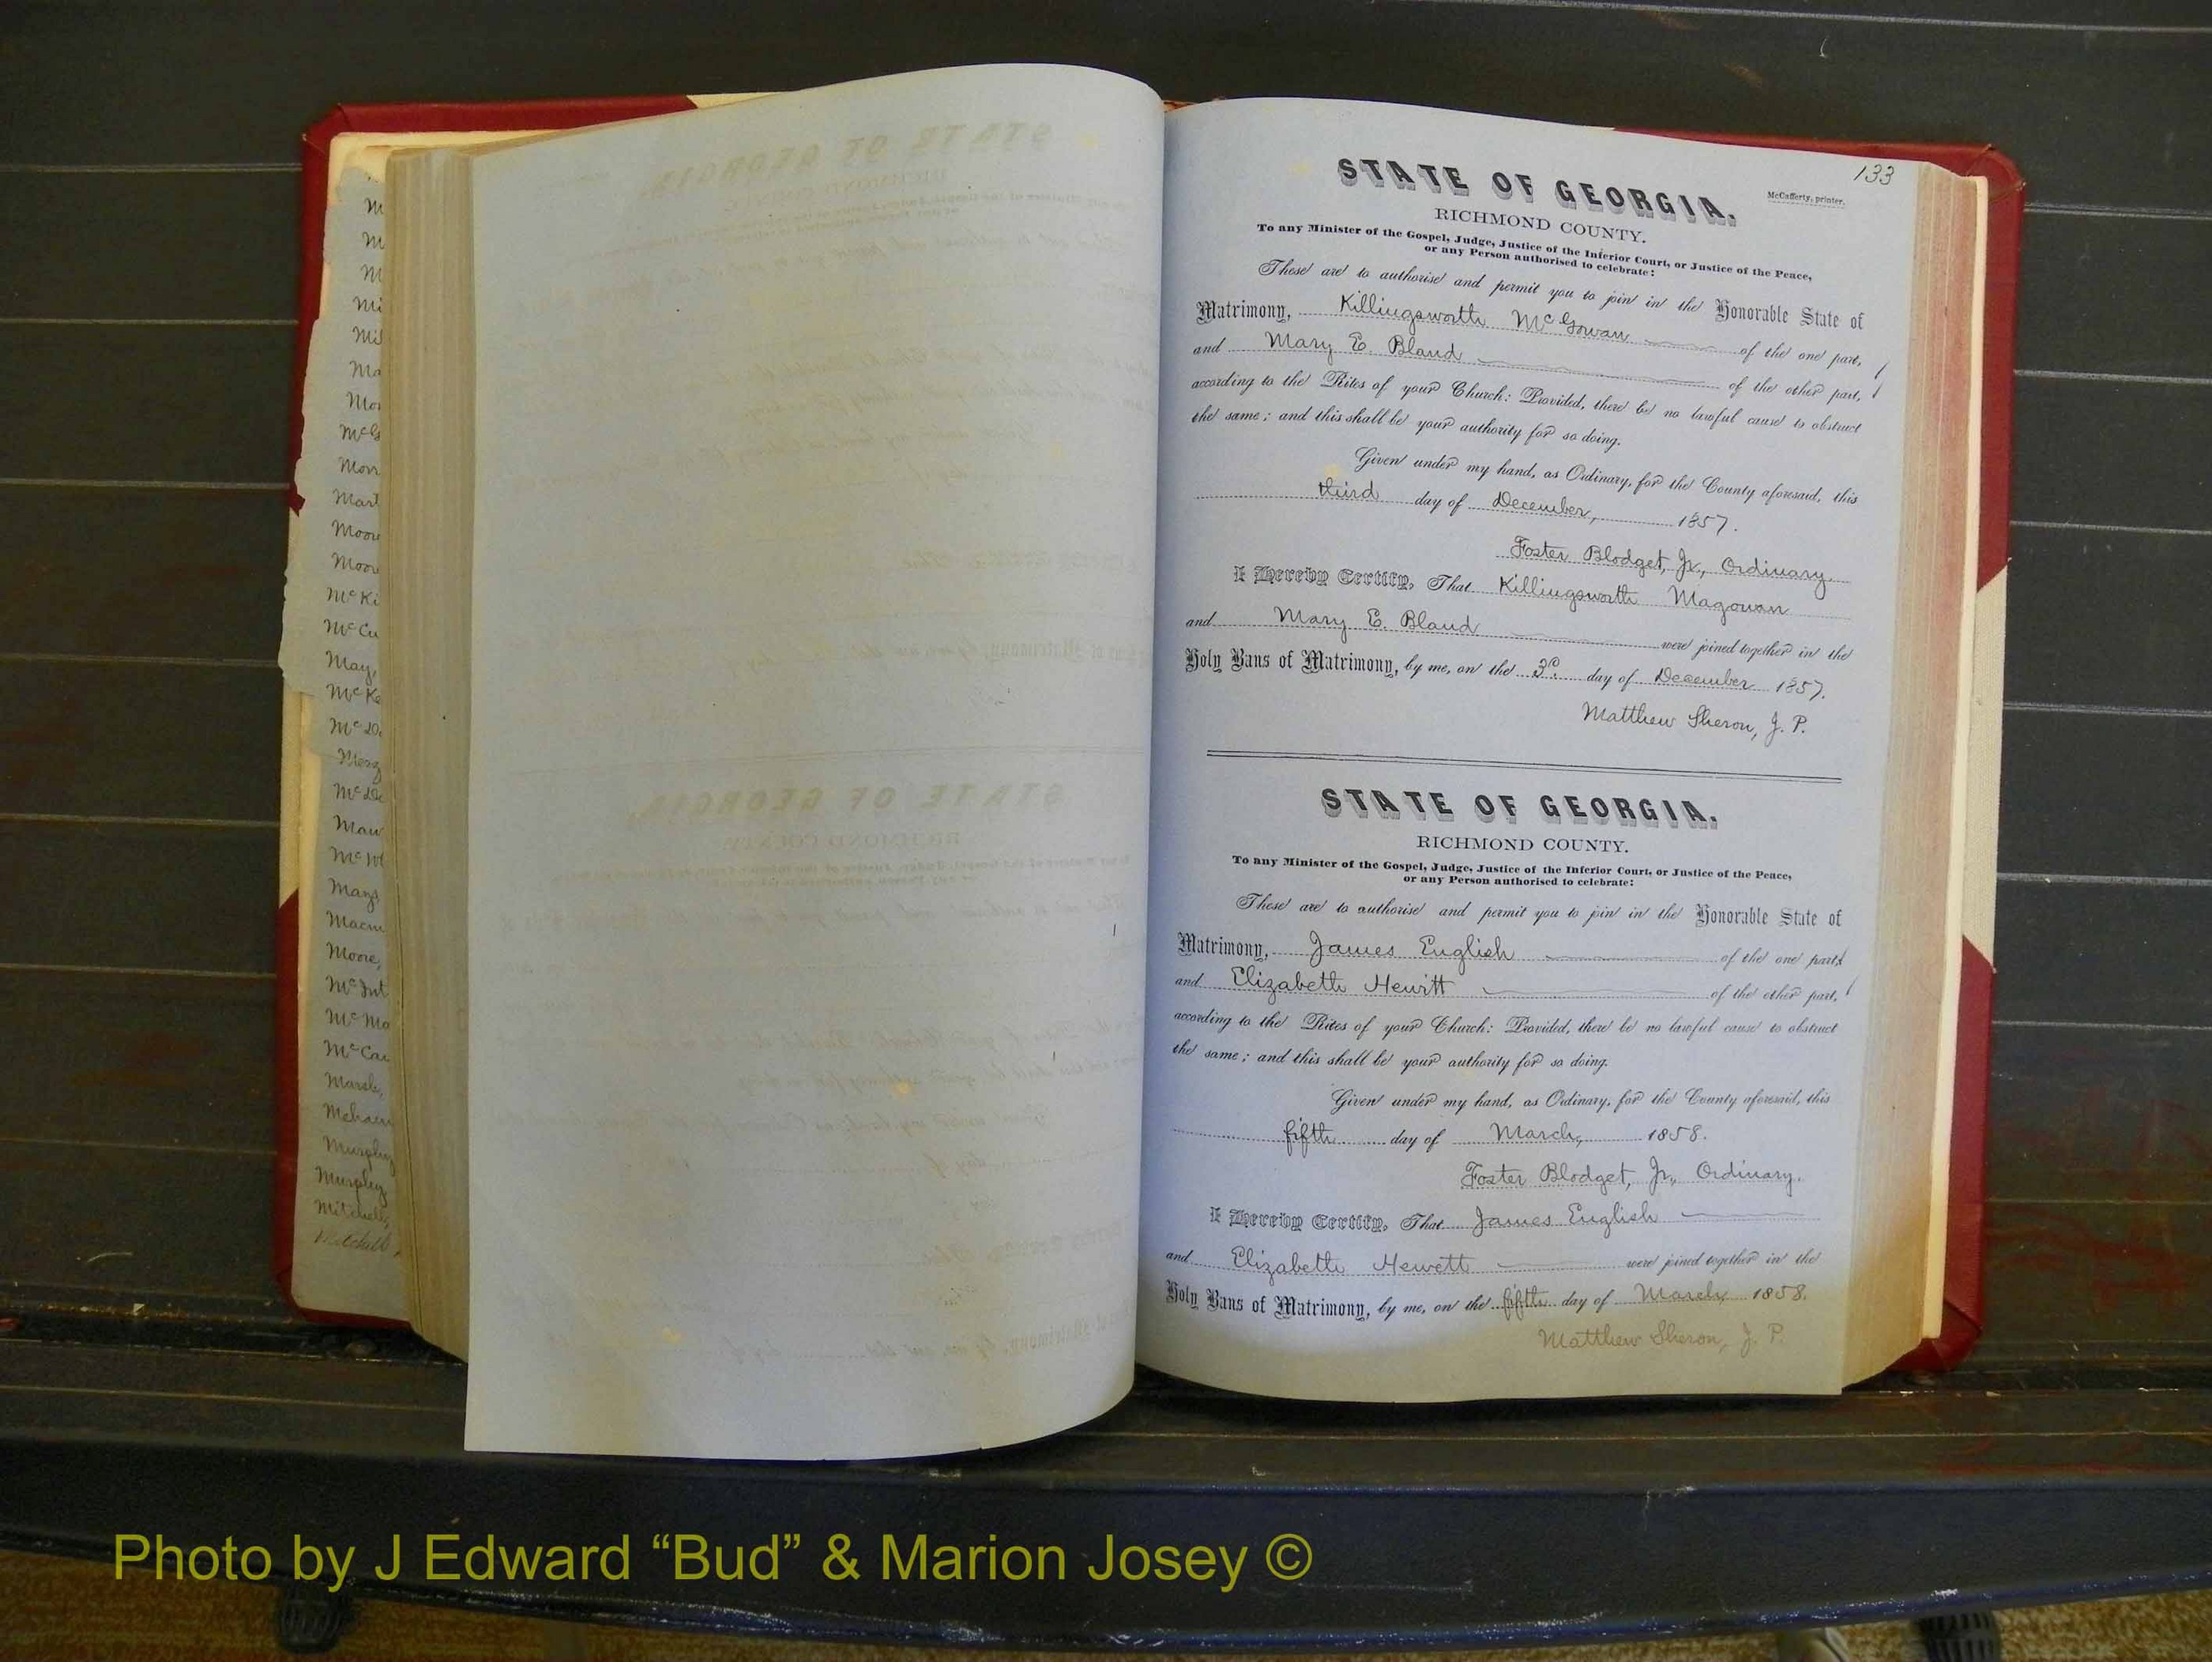 M
M
M
Mi
Mil
Ma
Mor
McG
Morr
Mart
Moore
Moore
McKi
McCu
May,
McKe
McDo
McDo
Mau
Mays
Macm
Moore,
McInt
McMa
McCar
Marsh,
Murphy
Murphy
Mitchell,
Mitchell,
133
STATE OF GEORGIA.
McCafferty, printer.
RICHMOND COUNTY.
To any Minister of the Gospel, Judge, Justice of the Inferior Court, or Justice of the Peace,
or any Person authorised to celebrate:
These are to authorise and permit you to join in the Honorable State of
Matrimony, Killingsworth McGowan of the one part,
and Mary E. Bland of the other part,
according to the Rites of your Church: Provided, there be no lawful cause to obstruct
the same; and this shall be your authority for so doing.
Given under my hand, as Ordinary, for the County aforesaid, this
third day of December, 1857.
Foster Blodget, Jr., Ordinary.
I Hereby Certify, That Killingsworth Magowan
and Mary E. Bland were joined together in the
Holy Bans of Matrimony, by me, on the 3d. day of December 1857.
Matthew Sheron, J. P.
STATE OF GEORGIA.
RICHMOND COUNTY.
To any Minister of the Gospel, Judge, Justice of the Inferior Court, or Justice of the Peace,
or any Person authorised to celebrate:
These are to authorise and permit you to join in the Honorable State of
Matrimony, James English of the one part,
and Elizabeth Hewitt of the other part,
according to the Rites of your Church: Provided, there be no lawful cause to obstruct
the same; and this shall be your authority for so doing.
Given under my hand, as Ordinary, for the County aforesaid, this
fifth day of March, 1858.
Foster Blodget, Jr., Ordinary.
I Hereby Certify, That James English
and Elizabeth Hewett were joined together in the
Holy Bans of Matrimony, by me, on the fifth day of March 1858.
Matthew Sheron, J. P.
Photo by J Edward “Bud” & Marion Josey ©